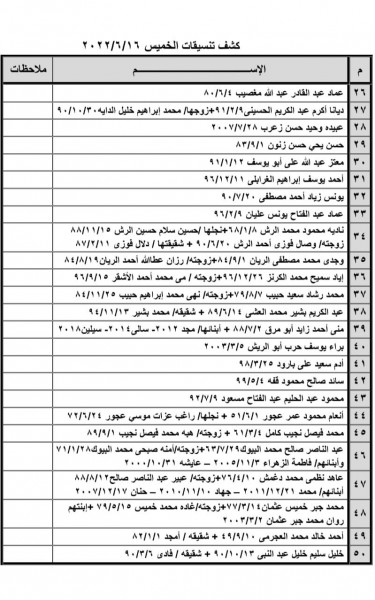 كشف تنسيقات الخميس ٢٠٢٢/٦/١٦
م الإســـم ملاحظات
٢٦ عماد عبد القادر عبد الله مغصيب ٨٠/٦/٤
٢٧ ديانا أكرم عبد الكريم الحسيني ٩١/٢/٩+زوجها/ محمد إبراهيم خليل الدايه ٩٠/١٠/٣٠
٢٨ عبيده وحيد حسن زعرب ٢٠٠٧/٧/٢٨
٢٩ حسن يحي حسن زنون ٨٣/٩/١
٣٠ معتز عبد الله على أبو يوسف ٩١/١/١٢
٣١ أحمد يوسف إبراهيم الغرابلى ٩٦/١٢/١١
٣٢ يونس زياد أحمد مصطفى ٩٠/٧/٢٠
٣٣ عماد عبد الفتاح يونس عليان ٩٦/٢/٩
٣٤ ناديه محمود محمد الرش ٦٨/١/٨+نجلها/حسين سلام حسين الرش ٨٨/١١/١٥
زوجته/ وصال فوزى أحمد الرش ٩٠/٦/٢٠ + شقيقتها / دلال فوزى ٨٧/٢/١١
٣٥ وجدى محمد مصطفى الريان ٨٤/٩/١+زوجته/ رزان عطاالله أحمد الريان ٨٤/٨/١٩
٣٦ إياد سميح محمد الكرنز ٩٦/١٢/٢٦+زوجته / مى محمد أحمد الأشقر ٩٦/٩/١٥
٣٧ محمد رشاد سعيد حبيب ٧٩/٨/٧+زوجته/ نهى محمد إبراهيم حبيب ٨٤/١١/٢٥
٣٨ عبد الكريم بشير محمد العشى ٨٩/٦/١٤ + شقيقه/ محمد بشير ٩٤/١١/١٣
٣٩ منى أحمد زايد أبو مرق ٨٨/٧/٢ + أبنائها/ مجد ٢٠١٢- سالى٢٠١٤- سيلين٢٠١٨
٤٠ براء يوسف حرب أبو الريش ٢٠٠٣/٣/٥
٤١ أدم سعيد على بارود ٩٨/٣/٢٥
٤٢ سائد صالح محمود فقه ٩٩/٥/٤
٤٣ محمود عبد الحليم عبد الفتاح مسعود ٩٢/٧/٩
٤٤ أنعام محمود عمر عجور ٥١/٦/١ + نجلها/ راغب عزات موسي عجور ٧٢/٦/٢٤
٤٥ محمد فيصل نجيب كامل ٦١/٣/٤ + زوجته/ هبه محمد فيصل نجيب ٨٩/٩/١
٤٦ عبد الناصر صالح محمد البيوك ٦٣/٧/٢٩+زوجته/أمنه صبحى محمد البيوك ٧١/١/٢٨
وأبنائهم/ فاطمة الزهراء ٢٠٠٥/١١/٣ – عايشه ٢٠٠٠/١٠/٣١
٤٧ عاهد نظمى محمد دغمش ٧٦/٤/١٠+ زوجته/ عبير عبد الناصر صالح ٨٨/٨/١٢
أبنائهم/ محمد ٢٠١١/١٢/٢١ – جهاد ٢٠١٠/١١/١٠ – حنان ٢٠٠٧/١٢/١٧
٤٨ محمد جبر خميس عثمان ٧٧/٣/١٤+زوجته/غاده محمد خميس ٧٩/٥/١٥ +إبنتهم
روان محمد جبر عثمان ٢٠٠٣/٣/٢
٤٩ أحمد خالد محمد العجرمى ٤٩/٩/١٠ + شقيقه / أمجد ٨٢/١/١
٥٠ خليل سليم خليل عبد النبى ٩٠/١٠/١٣ + شقيقه/ فادى ٩٠/٣/٦